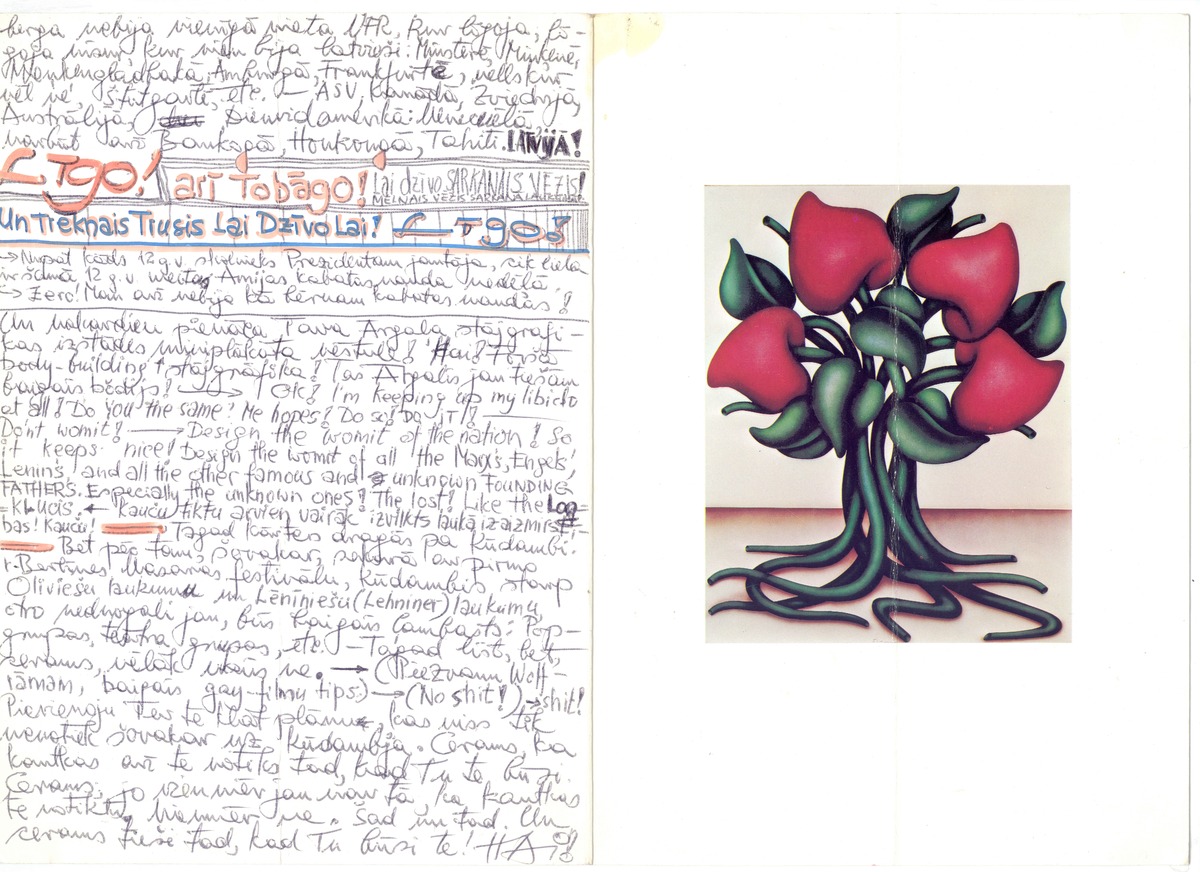 berga nebija vienīgā vieta VFR, kur lōgoja, lō-
goja mani, kur vien bija latvieši: Minsterē, Minkenē,
Menhengladbahā, Amburgā, Frankfurtē, vells kur
vēl ne, Štutgartē, etc. — ASV, Kanādā, Zviedrijā,
Austrālijā, Dienvidamerikā: Venecuēlā,
varbūt arī Bankogā, Honkongā, Tahiti. LATVIJĀ!
LTgo!
arī Tobāgo!
Lai dzīvo SARKANAIS VĒZIS!
MELNAIS VĒZIS SARKANĀ
Un Treknais Trusis Lai Dzīvo Lai!
→ Nupat kāds 12 g.v. skolnieks Prezidentam jautāja, cik liela
12 g.v. Amijas kabatas nauda nedēļā.
→ Zero! Man arī nebija kā bērnam kabatas naudas!
Un vakardien pienāca Tava Argaļa stājgrafi-
kas izstādes miniplakāta vēstule! Hai! Forša
body-building + stājgrāfika! Tas Argalis jau tiešām
baigais bodijs! → OK! I'm keeping up my libido
at all! Do you the same? Me hopes! Do so! Do iT!
Don't womit! → Design the womit of the nation! So
it keeps nice! Design the womit of all the Marx's, Engels',
Lenin's, and all the other famous and unknown FOUNDING
FATHERS. Especially the unknown ones! The lost! Like the
= Klucis. ← Kaut tiktu arvien vairāk izvilkts laukā iz aizmirstī-
bas! Kauču!
Tagad kārtēs dragās pa Kūdambi.
Bet pēc tam, šovakar, sakarā ar pirmo
Berlīnes Vasaras festivālu, Kūdambis starp
Oliviešu laukumu un Lēniniešu (Lehniner) laukumu,
otro nedrogali jau, būs baigais lambasts: Pop-
grupas, teātra grupas, etc. — Tagad līst, bet,
cerams, vēlāk vairs ne. → (Piezvanu Wolf-
rāmam, baigais gay-filmu tips) → (No shit!) → shit!
Pievienoju Tev te klāt plānu, kas viss tik
nenotiek šovakar uz Kūdambja. Cerams, ka
kautkas arī te notiks tad, kad Tu te būsi.
Cerams, jo vienmēr jau nav tā, ka kautkas
te notiktu, vienmēr ne. Šad un tad. Un
cerams tieši tad, kad Tu būsi te! HA!